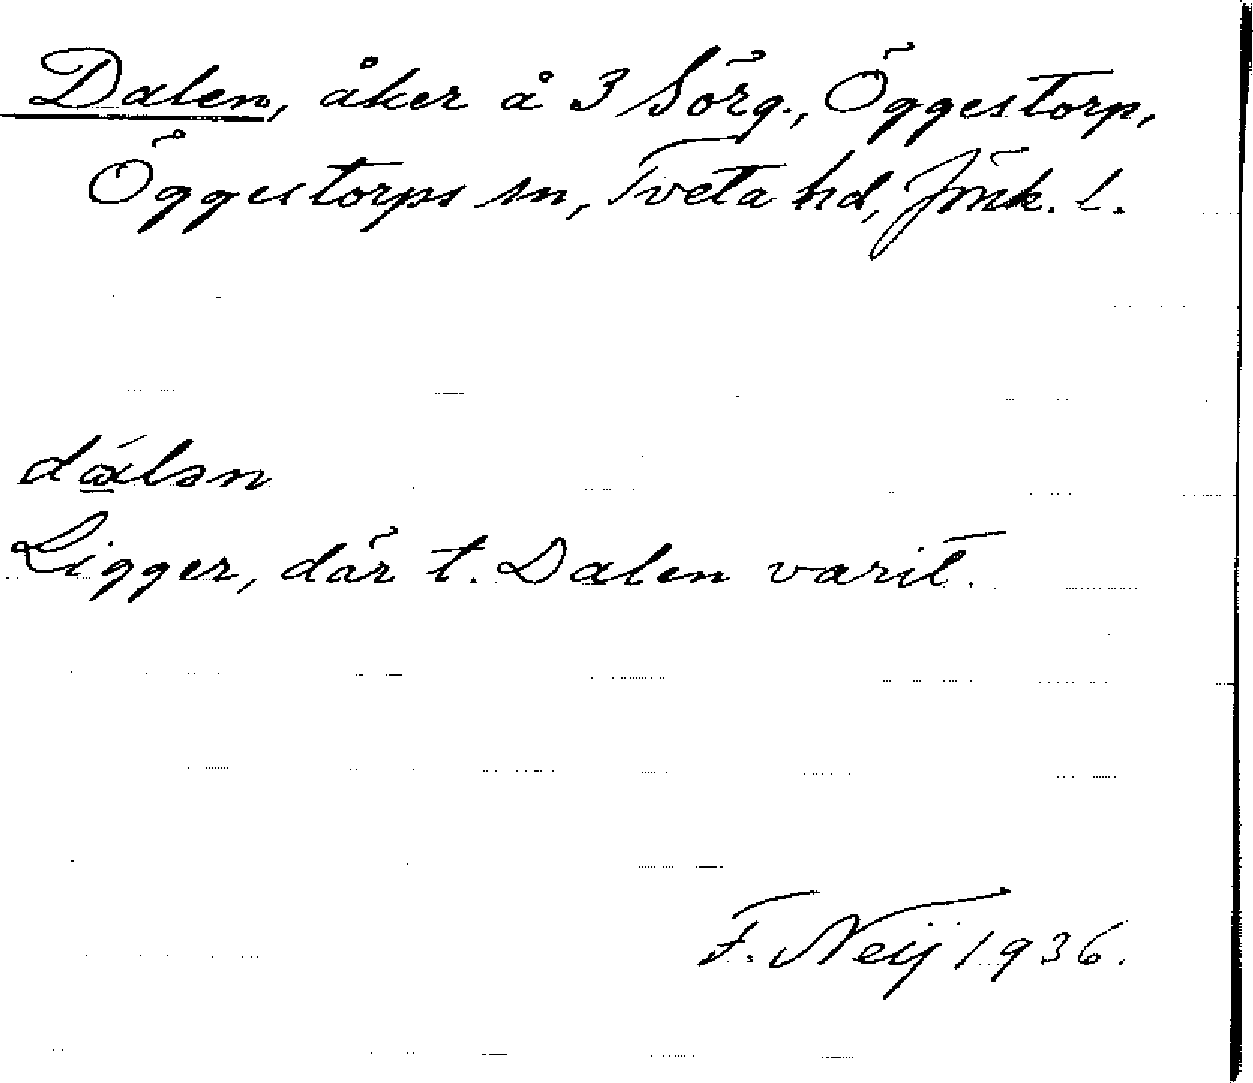 Dalen, åker å 3 Sörg., Öggestorp,
Öggestorps sn, Tveta hd, Jönk. l.
dɑ̀lən
Ligger, där t. Dalen varit.
F. Neij 1936.